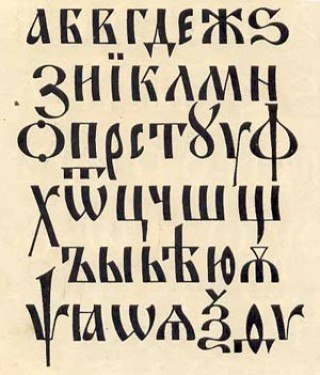 А Б В Г Д Е Ж Ѕ
З Н Ї К Л М Н
Ѻ П Р С Т Ꙋ У Ф
Х Ѿ Ц Ч Ш Щ
Ъ Ы Ь Ѣ Ю Ѫ
Ѱ Ꙗ Ѡ Ѧ Ѯ Д Ѵ